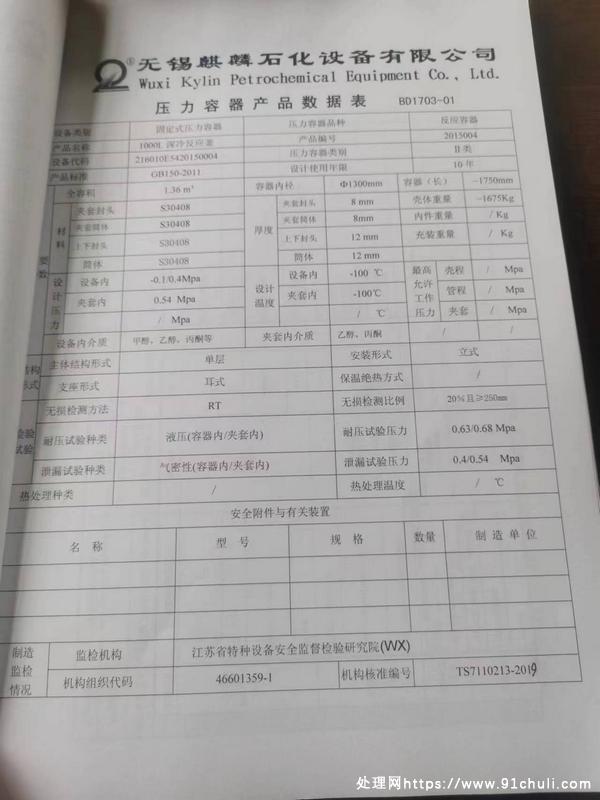 ® 无锡麒麟石化设备有限公司
Wuxi Kylin Petrochemical Equipment Co., Ltd.
压力容器产品数据表 BD1703-01
设备类别 固定式压力容器 压力容器品种 反应容器
产品名称 1000L 深冷反应釜 产品编号 2015004
设备代码 216010E5420150004 压力容器类别 II类
产品标准 GB150-2011 设计使用年限 10年
全容积 1.36 m³ 容器内径 Φ1300mm 容器(长) ~1750mm
要数
材料 夹套封头 S30408 厚度 夹套封头 8 mm 壳体重量 ~1675Kg
夹套筒体 S30408 夹套筒体 8mm 内件重量 / Kg
上下封头 S30408 上下封头 12 mm 充装重量 / Kg
筒体 S30408 筒体 12 mm
设计压力 设备内 -0.1/0.4Mpa 设计温度 设备内 -100 ℃ 最高允许工作压力 壳程 / Mpa
夹套内 0.54 Mpa 夹套内 -100℃ 管程 / Mpa
/ Mpa / ℃ 夹套 / Mpa
设备内介质 甲醇、乙醇、丙酮等 夹套内介质 乙醇、丙酮 / /
结构形式 主体结构形式 单层 安装形式 立式
支座形式 耳式 保温绝热方式 /
检验试验 无损检测方法 RT 无损检测比例 20%且≥250mm
耐压试验种类 液压(容器内/夹套内) 耐压试验压力 0.63/0.68 Mpa
泄漏试验种类 气密性(容器内/夹套内) 泄漏试验压力 0.4/0.54 Mpa
热处理种类 / 热处理温度 / ℃
安全附件与有关装置
名称 型号 规格 数量 制造单位
制造监检情况 监检机构 江苏省特种设备安全监督检验研究院(WX)
机构组织代码 46601359-1 机构核准编号 TS7110213-2019
处理网https://www.91chuli.com